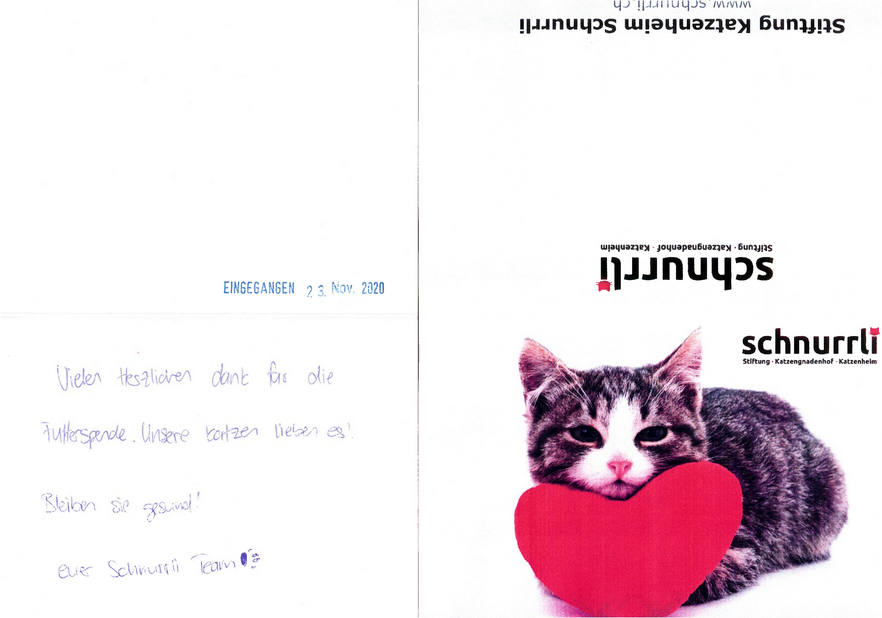 EINGEGANGEN 23. Nov. 2020
Vielen Herzlichen dank für die
Futterspende. Unsere katzen lieben es!
Bleiben sie gesund!
euer Schnurrli Team
www.schnurrli.ch
Stiftung Katzenheim Schnurrli
schnurrli
Stiftung · Katzengnadenhof · Katzenheim
schnurrli
Stiftung · Katzengnadenhof · Katzenheim